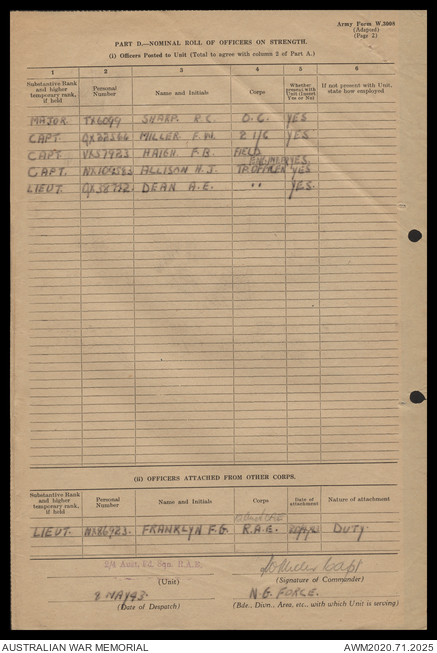 Army Form W.3008
(Adapted)
(Page 2)
PART D.—NOMINAL ROLL OF OFFICERS ON STRENGTH.
(i) Officers Posted to Unit (Total to agree with column 2 of Part A.)
1 2 3 4 5 6
Substantive Rank and higher temporary rank, if held | Personal Number | Name and Initials | Corps | Whether present with Unit (Insert Yes or No) | If not present with Unit, state how employed
MAJOR TX6099 SHARP. R.C. O.C. YES
CAPT. QX22566 MILLER F.W. 2 I/C YES
CAPT VX57923 HAIGH. F.B. FIELD ENGINEER YES.
CAPT. ALLISON H.J. TP. OFFICER YES
LIEUT. DEAN A.E. " YES.
(ii) OFFICERS ATTACHED FROM OTHER CORPS.
Substantive Rank and higher temporary rank, if held | Personal Number | Name and Initials | Corps | Date of attachment | Nature of attachment
LIEUT. NX86723. FRANKLYN F.G. R.A.E. DUTY
2/4 Aust. Fd. Sqn. R.A.E.
(Unit)
Capt
(Signature of Commander)
8 MAY 43.
(Date of Despatch)
N.G. FORCE.
(Bde., Divn., Area, etc., with which Unit is serving)
AUSTRALIAN WAR MEMORIAL
AWM2020.71.2025